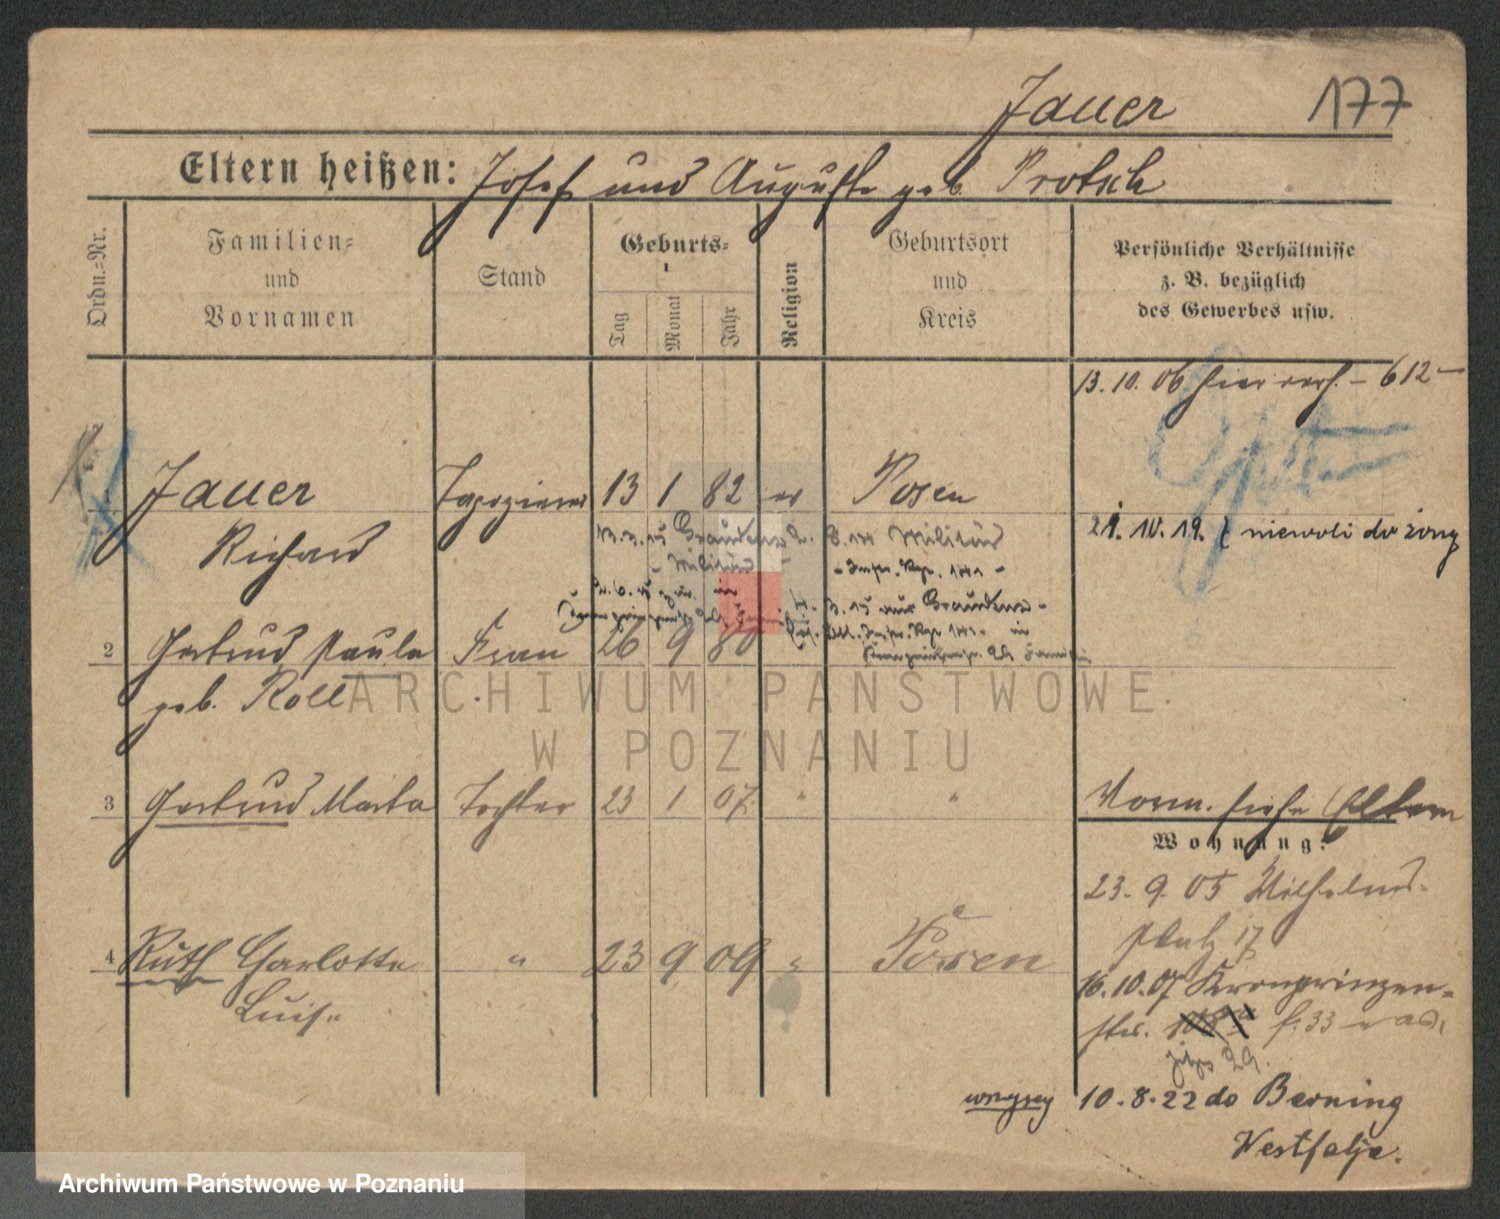 Jauer 177
Eltern heißen: Josef und Auguste geb. Protsch
Ordn.=Nr.
Familien=
und
Vornamen
Stand
Geburts=
Tag
Monat
Jahr
Religion
Geburtsort
und
Kreis
Persönliche Verhältnisse
z. B. bezüglich
des Gewerbes usw.
13. 10. 06 hier verh. – 612 –
1 Jauer Tapezierer 13 1 82 ev Posen
Richard
21. 10. 19. z niewoli do żony
Graudenz
Militär
Militär
Graudenz
2 Gertrud Paula Frau 26 9 80
geb. Roll
3 Gertrud Marta Tochter 23 1 07. " "
Vorm. siehe Eltern
Wohnung:
23. 9. 05 Wilhelms-
platz 17
4 Ruth Charlotte " 23 9 09 " Posen
Luise
16. 10. 07 Kronprinzen-
str.
29.
wszyscy 10. 8. 22 do Berning
Westfalje.
ARCHIWUM PAŃSTWOWE
W POZNANIU
Archiwum Państwowe w Poznaniu